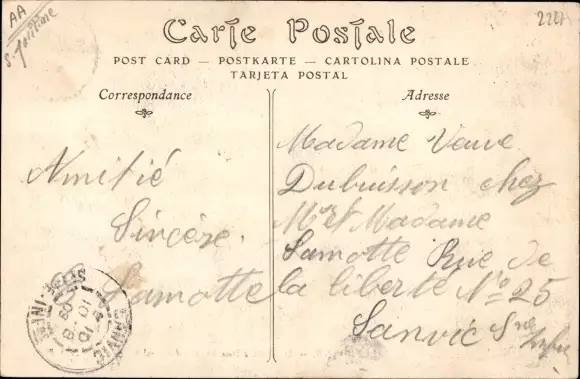 AA
2221
Carte Postale
POST CARD — POSTKARTE — CARTOLINA POSTALE
TARJETA POSTAL
Correspondance
Adresse
Amitié
Sincère.
Lamotte
Madame Veuve
Dubuisson chez
Mr et Madame
Lamotte Rue de
la liberté No 25
Sanvic Sne
SANVIC
10